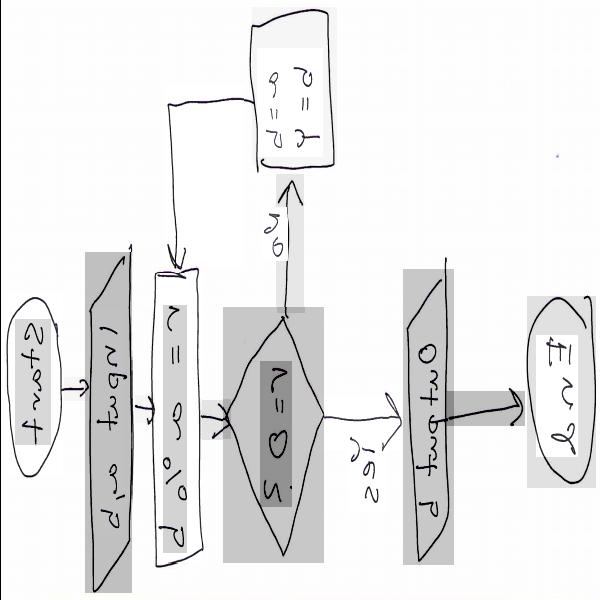 Start
Input a,b
r = a % b
r = 0 ?
no
a = b
b = r
yes
Output b
End